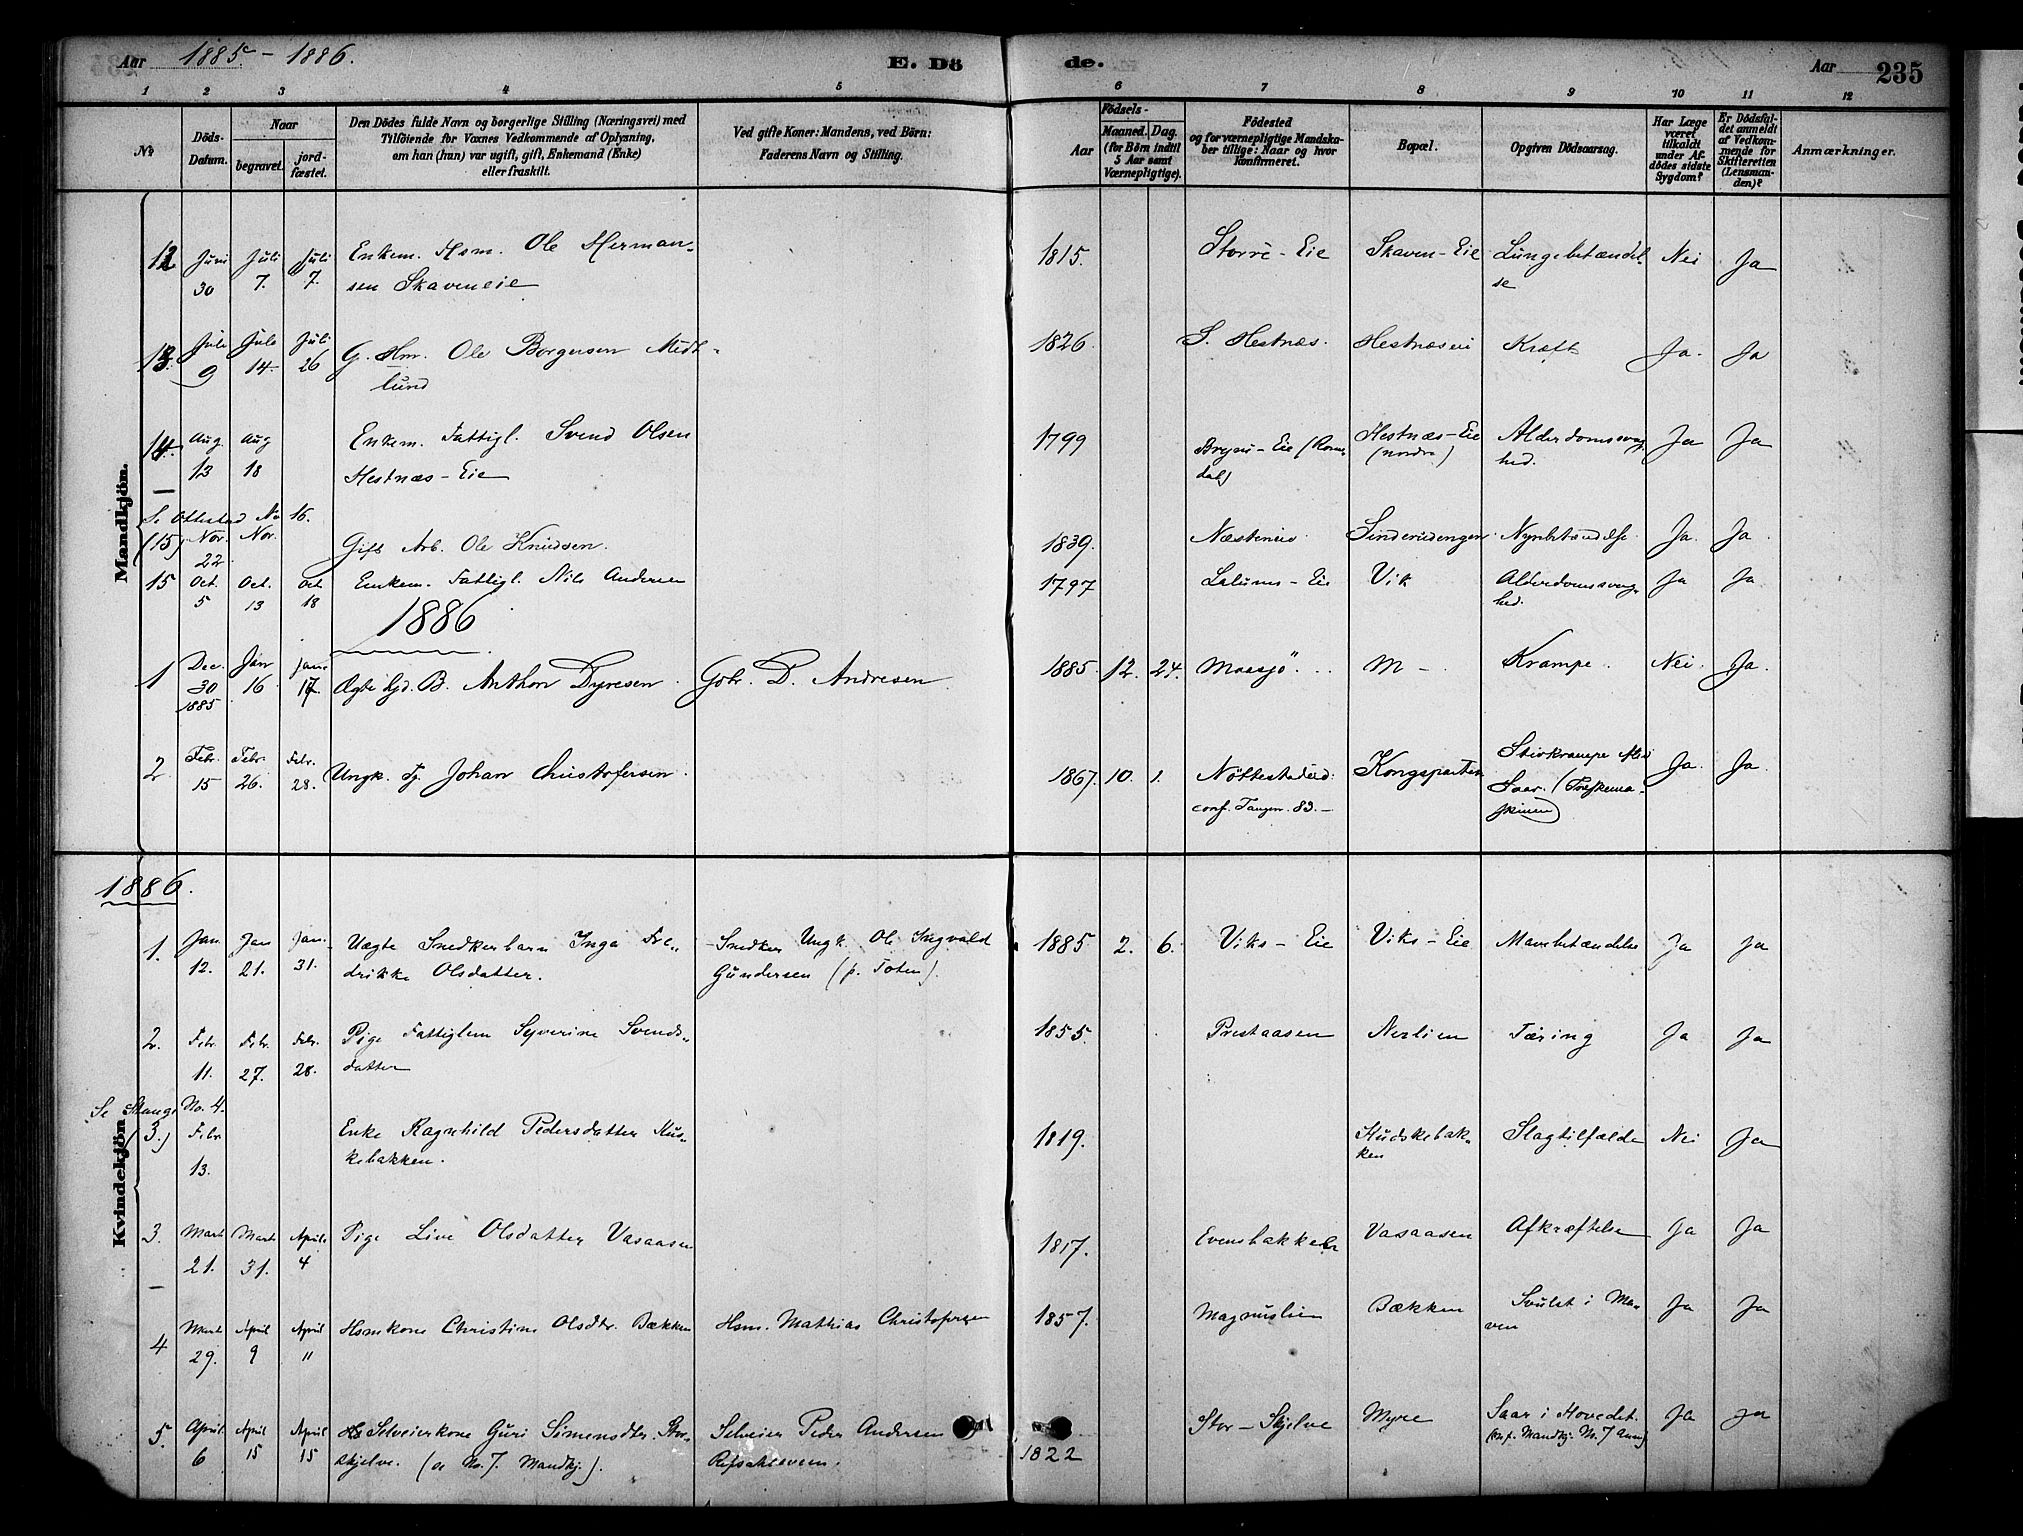 Aar 1885 - 1886.
E. Dö
de.
Aar
235
1 2 3 4 5 6 7 8 9 10 11 12
No
Döds-
Datum.
Naar
begravet.
jord-
fæstet.
Den Dödes fulde Navn og borgerlige Stilling (Næringsvei) med
Tilföiende for Voxnes Vedkommende af Oplysning,
om han (hun) var ugift, gift, Enkemand (Enke)
eller fraskilt.
Ved gifte Koner: Mandens, ved Börn:
Faderens Navn og Stilling.
Födsels-
Aar
Maaned. Dag.
(for Börn indtil
5 Aar samt
Værnepligtige).
Födested
og for værnepligtige Mandska-
ber tillige: Naar og hvor
konfirmeret.
Bopæl.
Opgiven Dödsaarsag.
Har Læge
været
tilkaldt
under Af-
dödes sidste
Sygdom?
Er Dödsfal-
det anmeldt
af Vedkom-
mende for
Skifteretten
(Lensman-
den)?
Anmærkninger.
Mandkjön.
12 Juni 30 Juli 7. Juli 7. Enkem. Hsm. Ole Herman-
sen Skaveneie
1815. Storre-Eie Skaven-Eie Lungebetændel-
se Nei Ja
13. Juli 9 Juli 14. Juli 26 G. Hm. Ole Borgersen Midt-
lund
1826. S. Hestnæs. Hestnæseie Kræft Ja. Ja
14. Aug 13 Aug 18 Enkem. Fattigl. Svend Olsen
Hestnæs-Eie
1799 Bryni-Eie (Rom-
dal) Hestnæs-Eie
(nordre) Alderdomssvag-
hed. Ja Ja
Se Ottestad No 16.
(15) Nov. 22 Nov. Gift Arb. Ole Knudsen.
1839. Sinderudengen Ja. Ja.
15 Oct. 5 Oct. 13 Oct 18 Enkem. Fattigl. Nils Andersen
1797 Lalums-Eie Vik Alderdomssvag-
hed. Ja Ja
1886
1 Dec. 30 1885 Jan 16 Jan 17 Ægte B. Anthon Dyresen. Gbr. D. Andresen.
1885. 12. 24. Maasjö. M-. Krampe. Nei. Ja.
2. Febr. 15 Febr. 26. Febr. 28. Ungk. Tj. Johan Christofersen.
1867. 10. 1. Nöttestadeie
conf. Tangen. 83.- Kongsparten Stivkrampe
Saar. (Tærskema-
skinen) Ja. Ja.
1886.
Kvindekjön
1. Jan. 12. Jan 21. Jan. 31. Uægte Snedkerbarn Inga Fre-
drikke Olsdatter. Snedker Ungk. Ole Ingvald
Gundersen (p. Toten).
1885 2. 6. Viks-Eie Viks-Eie Mavebetændelse Ja Ja
2. Febr. 11. Febr. 27. Febr. 28. Pige Fattiglem Syverine Svends-
datter
1855. Prestaasen Nerlien Tæring Ja Ja
Se Stange No. 4.
(3.) Febr. 13. Enke Ragnhild Pedersdatter Kus-
kebakken.
1819. Kudskebak-
ken Slagtilfælde Nei Ja
3. Marts 21. Marts 31. April 4 Pige Live Olsdatter Vasaasen
1817. Evensbakken Vasaasen Afkræftelse Ja Ja
4 Marts 29. April 9 April 11 Hsmkone Christine Olsdtr. Bækken Hsm. Mathias Christofersen
1857. Magnuslien Bækken Svulst i Ma-
ven Ja Ja
5. April. 6 April 15 April 15 Selveierkone Guri Simensdtr. Stor-
skjelve. (se No. 7. Mandkj.). Selveier Peder Andersen
1822 Stor-Skjelve Myre Saar i Hovedet.
(conf. Mandkj. No. 7 Anm) Ja Ja